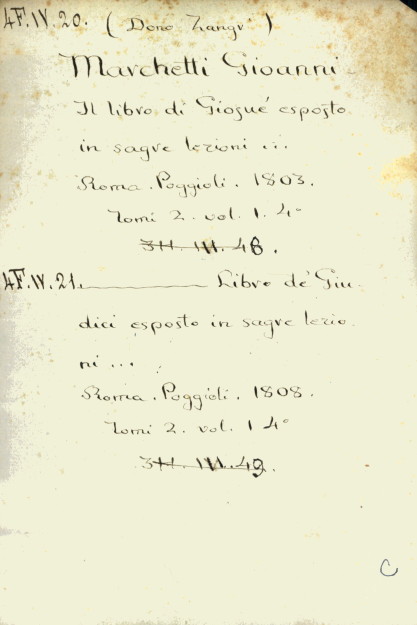 4F.IV.20. (Dono Zangrì)
Marchetti Gioanni
Il libro di Giosué esposto
in sagre lezioni ...
Roma. Poggioli. 1803.
Tomi 2. vol. 1. 4°
3H. III. 48.
4F.IV.21. Libro de' Giu-
dici esposto in sagre lezio
ni ...
Roma. Poggioli. 1808.
Tomi 2. vol. 1 4°
3H. III. 49.
C